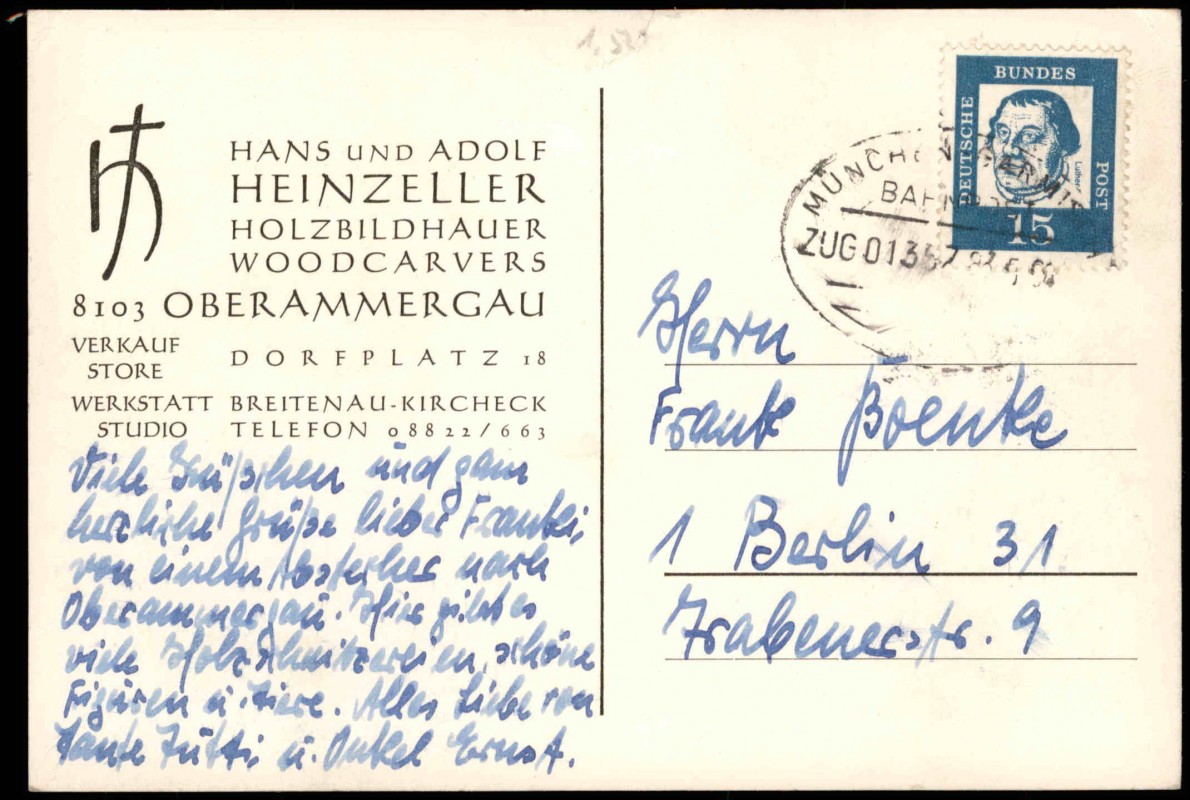 1,50
HANS UND ADOLF
HEINZELLER
HOLZBILDHAUER
WOODCARVERS
8103 OBERAMMERGAU
VERKAUF
STORE
DORFPLATZ 18
WERKSTATT BREITENAU-KIRCHECK
STUDIO TELEFON 08822/663
Viele Küsschen und ganz
herzliche Grüße lieber Franki,
von einem Abstecher nach
Oberammergau. Hier gibt es
viele Holzschnitzereien, schöne
Figuren u. Tiere. Alles Liebe von
Tante Jutti u. Onkel Ernst.
DEUTSCHE
BUNDES
POST
Luther
15
MÜNCHEN GARMIS
BAHNPOST
ZUG 0135
Herrn
Frank Boenke
1 Berlin 31
Trabenerstr. 9